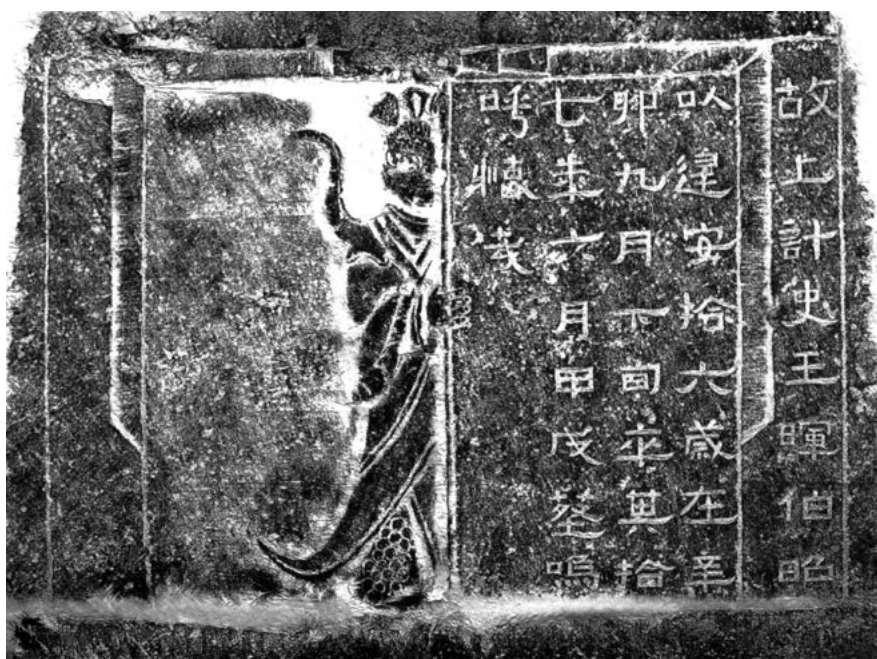 故上計史王暉伯昭
以建安拾六歲在辛
卯九月下旬卒其拾
七年六月甲戌葬嗚
呼懐哉